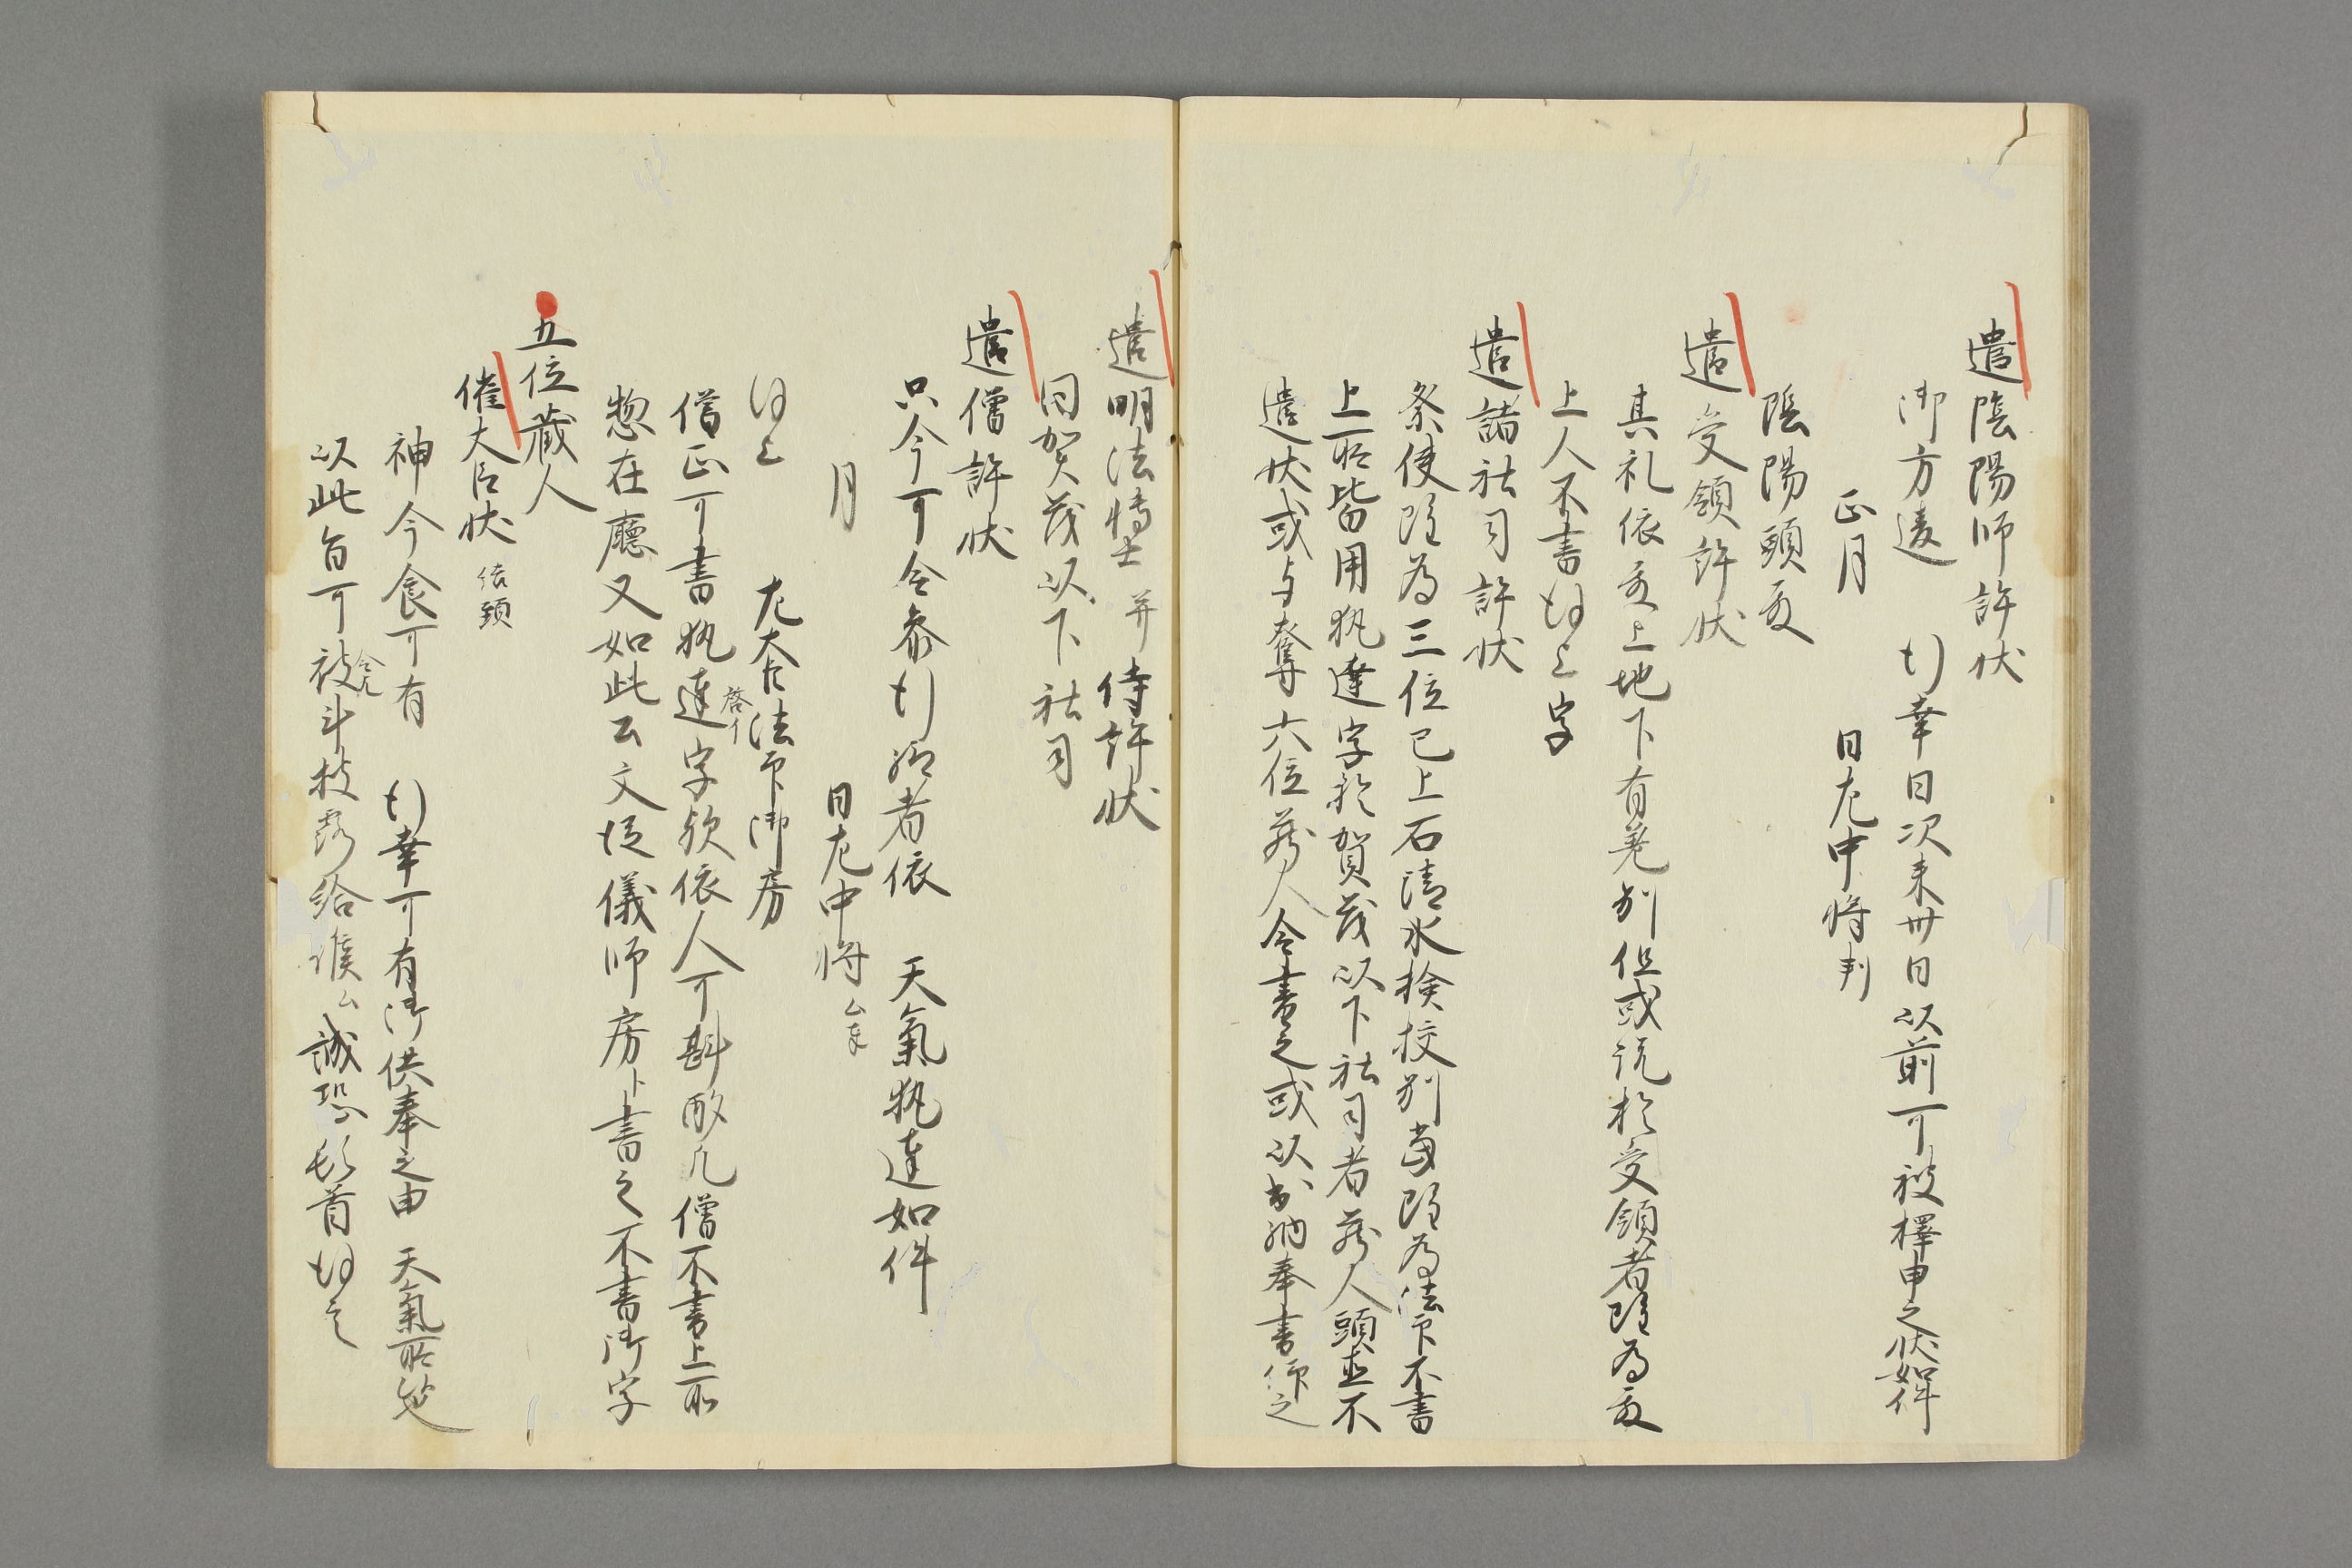 遣陰陽師許状
御方違　行幸日次来卅日以前可被擇申之状如件
正月　　日左中将判
陰陽頭殿
遣受領許状
其礼依殿上地下有差別但或説於受領者雖為殿
上人不書謹上字
遣諸社司許状
祭使雖為三位已上石清水検校別当雖為法印不書
上所皆用執達字於賀茂以下社司者蔵人頭並不
遣状或与奪六位蔵人令書之或以出納奉書仰之
遣明法博士并侍許状
同賀茂以下社司
遣僧許状
只今可令参行給者依　天氣執達如件
月　　日左中将
謹上　　左大臣法印御房
僧正可書執達字欤依人可斟酌凡僧不書上所
惣在廳又如此公文従儀師房ト書之不書御字
五位蔵人
催大臣状
神今食可有　行幸可有御供奉之由　天氣所候
以此旨可被斗披露給候
誠恐頓首謹言